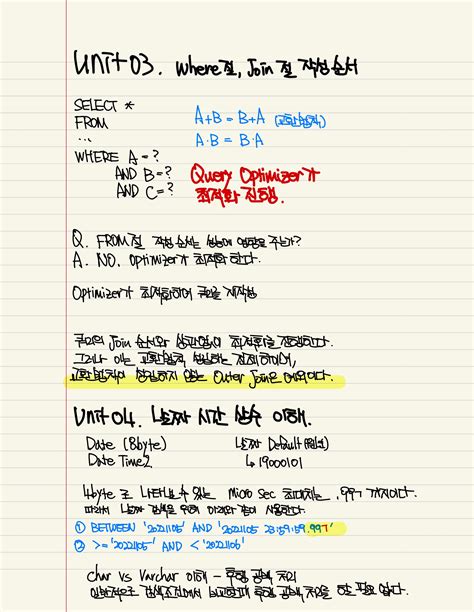 Unit 03. Where절, Join 절 작성순서
SELECT *
FROM
...
WHERE A = ?
AND B = ?
AND C = ?
A+B = B+A (교환법칙)
A·B = B·A
Query Optimizer가
최적화 진행.
Q. FROM절 작성 순서는 성능에 영향을 주는가?
A. NO. Optimizer가 최적화 한다.
Optimizer가 최적화하여 쿼리를 재작성
쿼리의 Join 순서와 상관없이 최적화를 진행한다.
그러나 이는 교환법칙 성립하는 전제 하이며,
교환법칙이 성립하지 않는 Outer Join은 예외이다.
Unit 04. 날짜 시간 상수 이해.
Date (8byte) 날짜 Default (
Date Time2 ↳ 19000101
4byte 로 나타낼 수 있는 Micro Sec 최대치는 .997 까지이다.
따라서 날짜 검색을 위해 아래와 같이 사용한다.
① BETWEEN '20221105' AND '20221105 23:59:59.997'
② >= '20221105' AND < '20221106'
char vs Varchar 이해 - 후행 공백 처리
일반적으로 검색조건에서 비교할때 후행 공백 처리를 할 필요 없다.